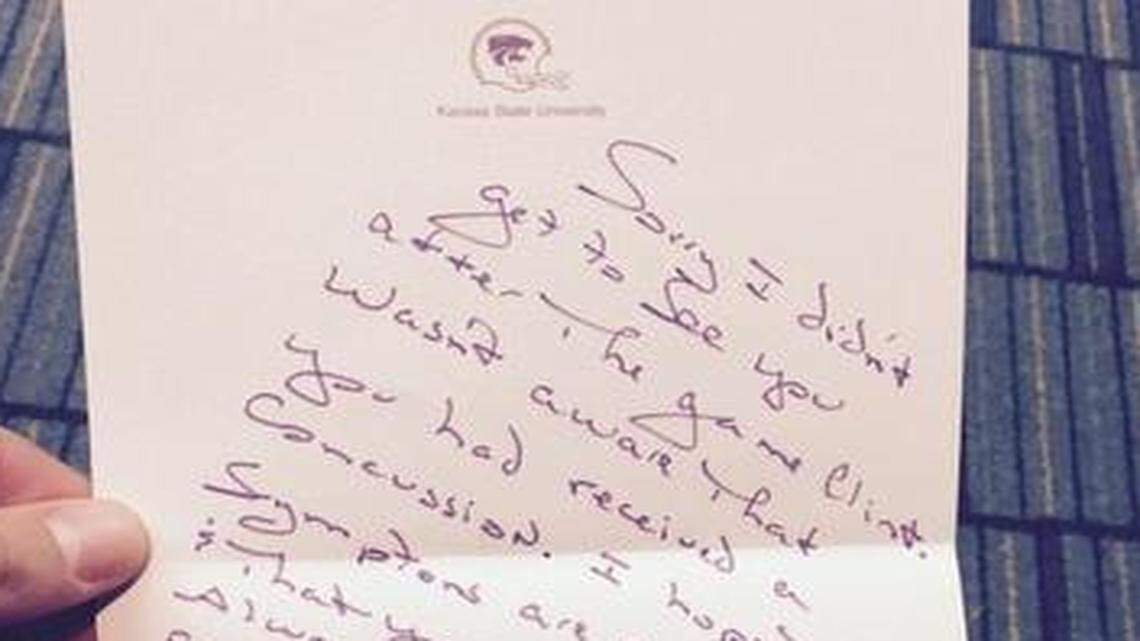 Kansas State University
Sorry I didn't
get to See you
after the game Clint.
Wasn't aware that
you had received a
Concussion. I hope
Symptoms are
that